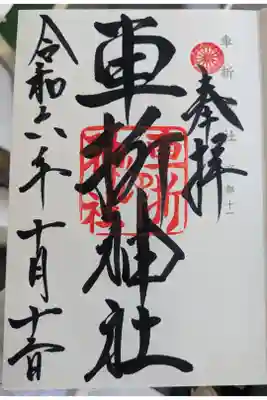 車折 社
奉拝
車折神社
令和六年十月十三日